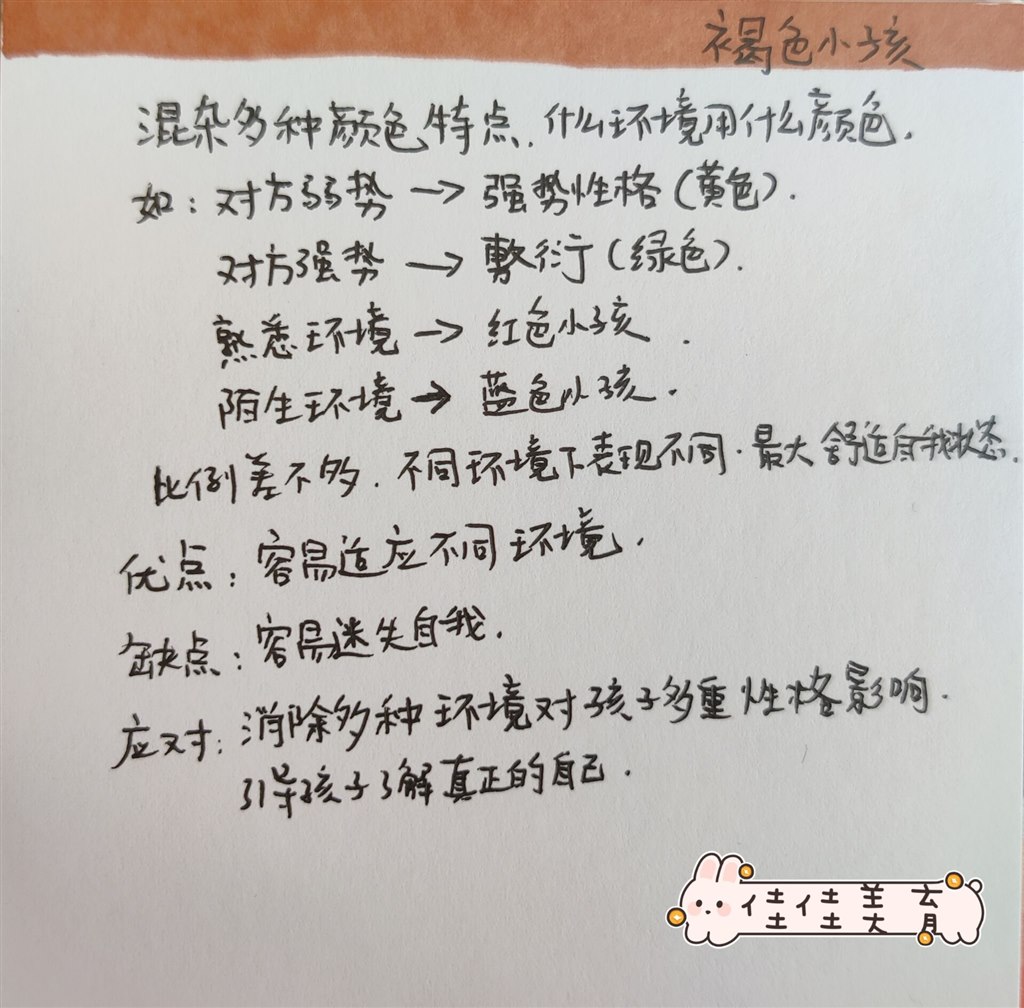 褐色小孩
混杂多种颜色特点.什么环境用什么颜色.
如:对方弱势→强势性格(黄色).
对方强势→敷衍(绿色).
熟悉环境→红色小孩.
陌生环境→蓝色小孩.
比例差不多.不同环境下表现不同.最大舒适自我状态.
优点:容易适应不同环境.
缺点:容易迷失自我.
应对:消除多种环境对孩子多重性格影响.
引导孩子了解真正的自己.
佳佳美育